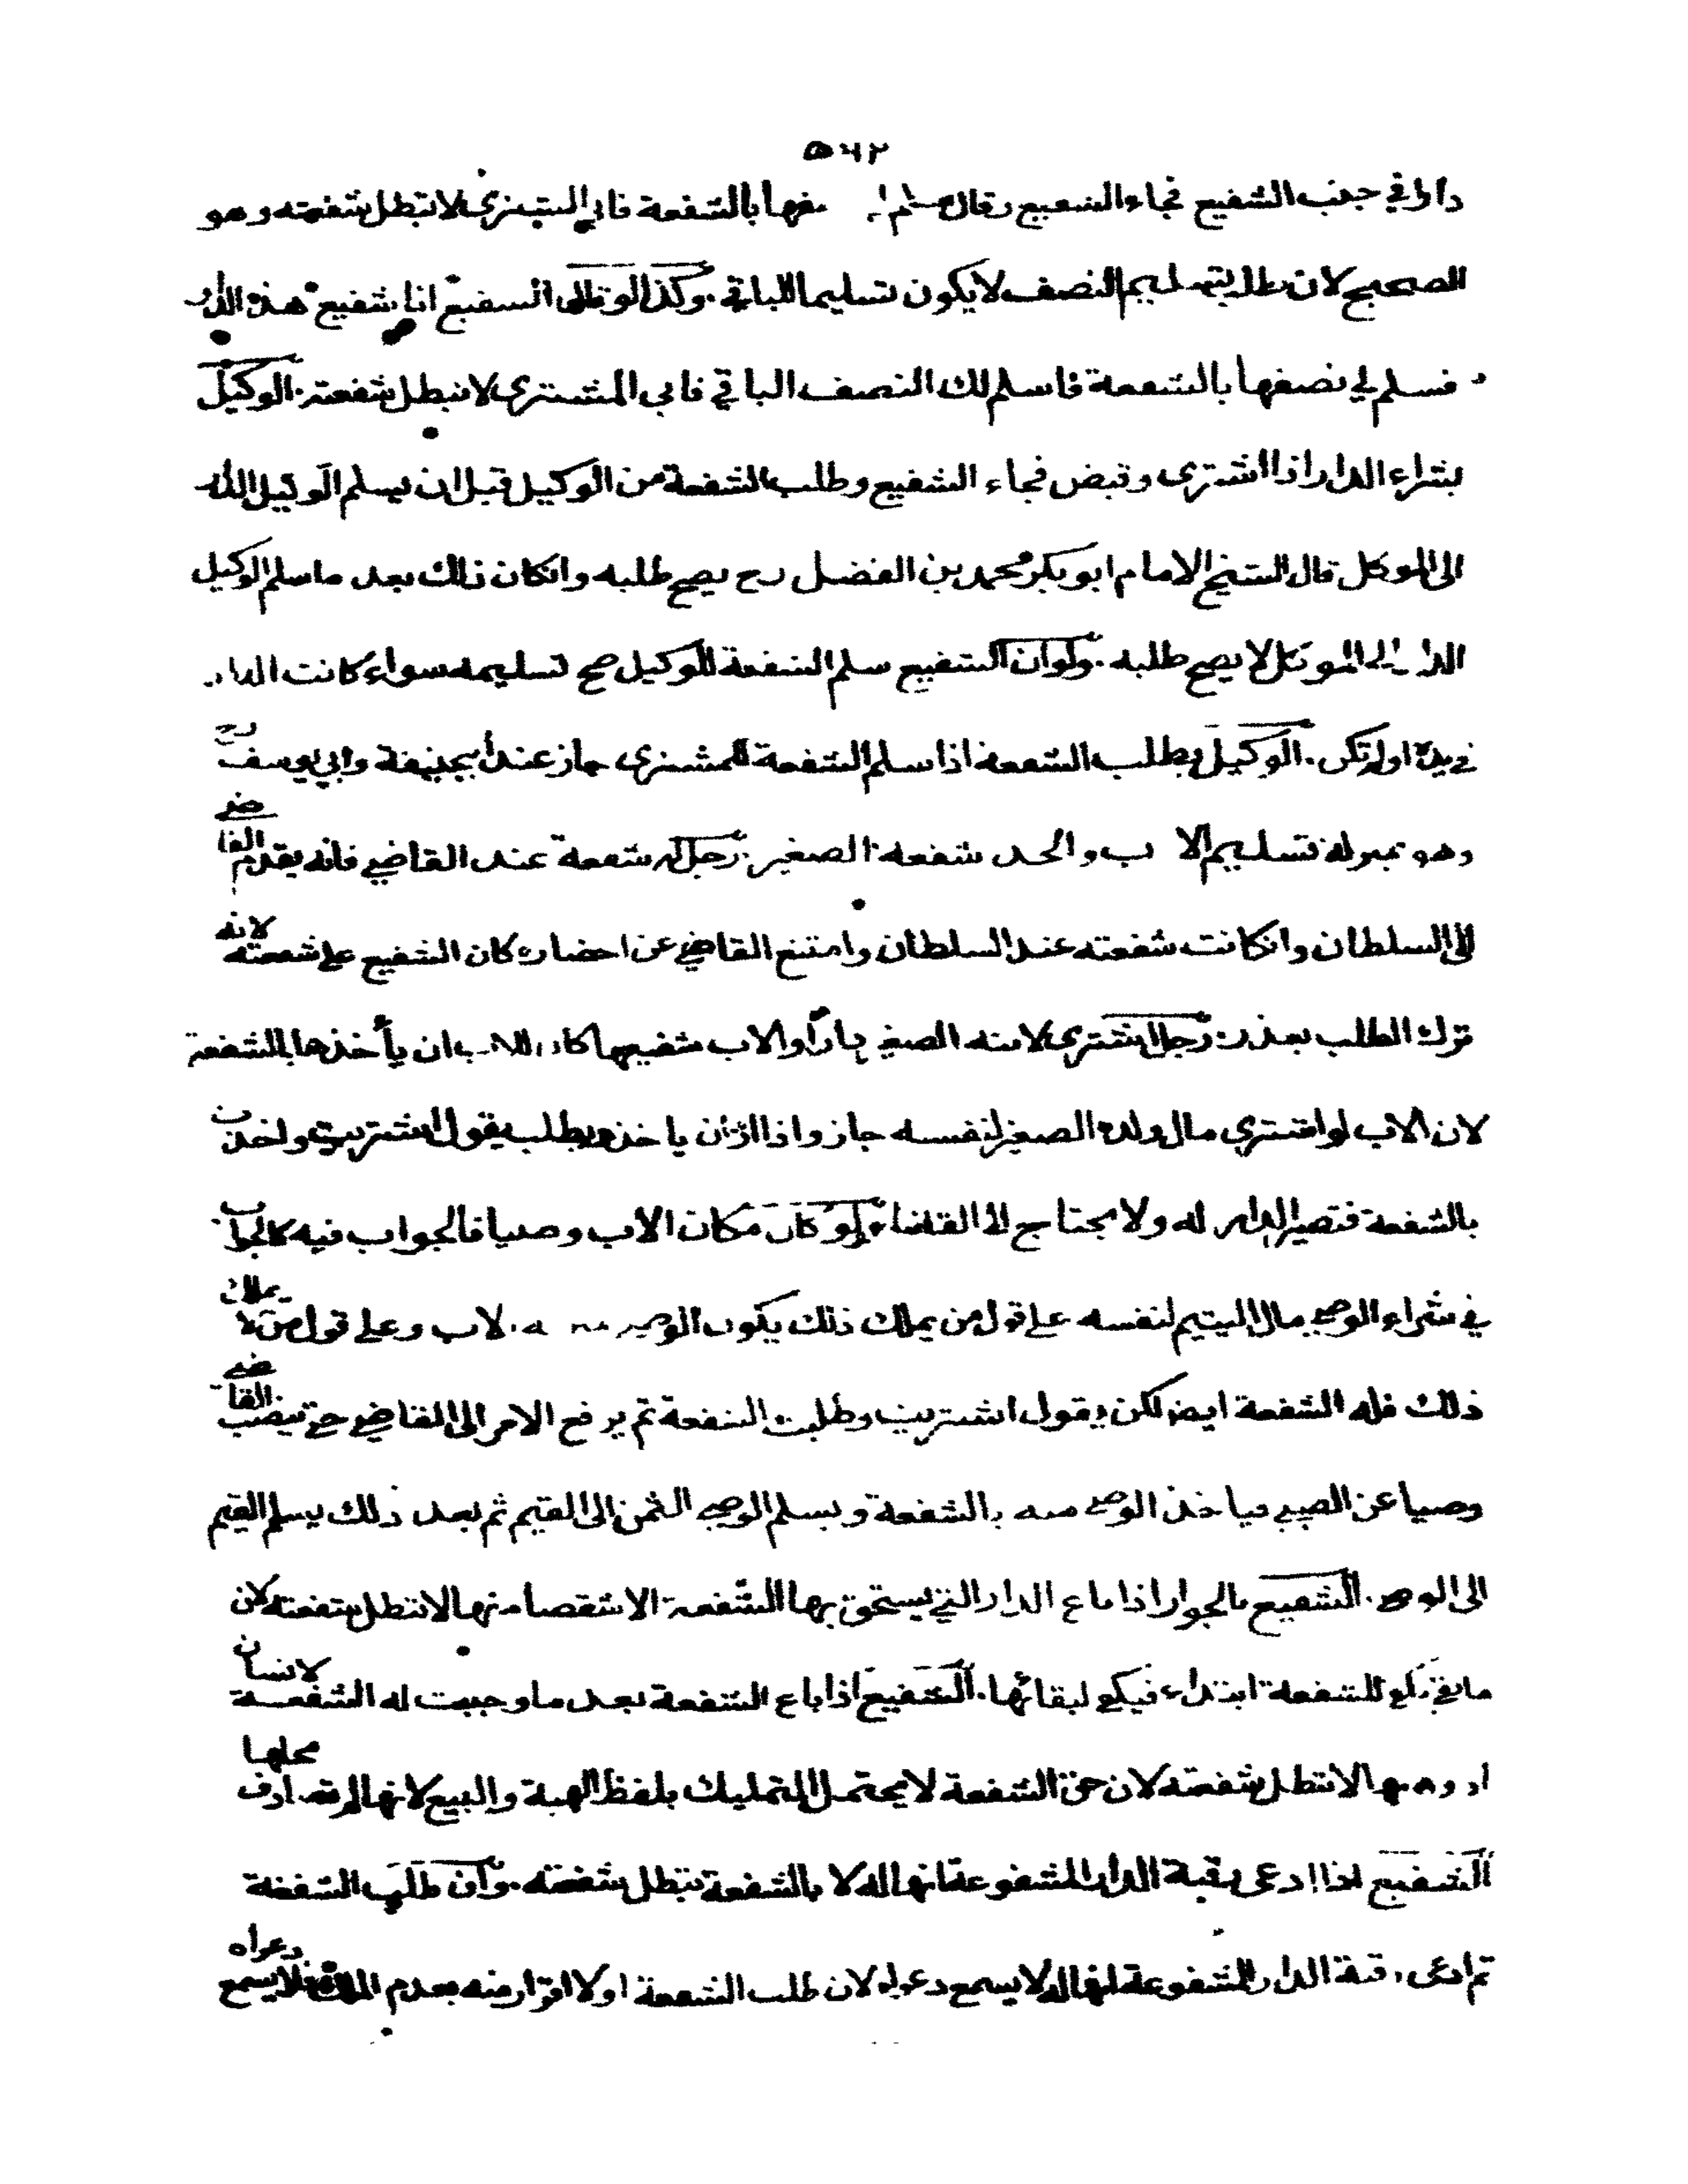 ٥٦٢
دارا في جنب الشفيع فجاء الشفيع وقال سلم نصفها بالشفعة فابى المشتري لا تبطل شفعته وهو
الصحيح لان طلب تسليم النصف لا يكون تسليما للباقي وكذا لو قال الشفيع انا شفيع هذه الدار
فسلم لي نصفها بالشفعة فاسلم لك النصف الباقي فابى المشتري لا تبطل شفعته الوكيل
بشراء الدار اذا اشترى وقبض فجاء الشفيع وطلب الشفعة من الوكيل قبل ان يسلم الوكيل الدار
الى الموكل قال الشيخ الامام ابو بكر محمد بن الفضل رح يصح طلبه وانكان ذلك بعد ما سلم الوكيل
الدار الى الموكل لا يصح طلبه ولو ان الشفيع سلم الشفعة للوكيل صح تسليمه سواء كانت الدار
في يده او لم تكن الوكيل بطلب الشفعة اذا سلم الشفعة للمشتري جاز عند ابي حنيفة وابي يوسف رح
وهو بمنزلة تسليم الاب والجد شفعة الصغير رجل له شفعة عند القاضي فانه يقدم القاضي
الى السلطان وانكانت شفعته عند السلطان وامتنع القاضي عن احضاره كان الشفيع على شفعته لانه
ترك الطلب بعذر رجل اشترى لابنه الصغير دارا والاب شفيعها كان للاب ان يأخذها بالشفعة
لان الاب لو اشترى مال ولده الصغير لنفسه جاز واذا اراد ان ياخذ ويطلب يقول اشتريت واخذت
بالشفعة فتصير الدار له ولا يحتاج الى القضاء ولو كان مكان الاب وصيا فالجواب فيه كالجواب
في شراء الوصي مال اليتيم لنفسه على قول من يملك ذلك يكون الوصي لاب وعلى قول من لا يملك
ذلك فله الشفعة ايضا لكن يقول اشتريت وطلبت الشفعة ثم يرفع الامر الى القاضي حتى ينصب القاضي
وصيا عن الصبي فياخذ الوصي منه بالشفعة ويسلم الوصي الثمن الى القيم ثم بعد ذلك يسلم القيم
الى الوصي الشفيع بالجوار اذا باع الدار التي يستحق بها الشفعة الا شقصا منها لا تبطل شفعته لان
ما بقي يكفي للشفعة ابتداء فيكفي لبقائها الشفيع اذا باع الشفعة بعد ما وجبت له الشفعة لانسان
او وهبها لا تبطل شفعته لان حق الشفعة لا يحتمل التمليك بلفظ الهبة والبيع لانها لم تصادف محلها
الشفيع اذا ادعى رقبة الدار المشفوعة انها له لا بالشفعة تبطل شفعته وان طلب الشفعة
ثم ادعى رقبة الدار المشفوعة انها له لا يسمع دعواه لان طلب الشفعة اولا اقرار منه بعدم الملك فلا يسمع دعواه